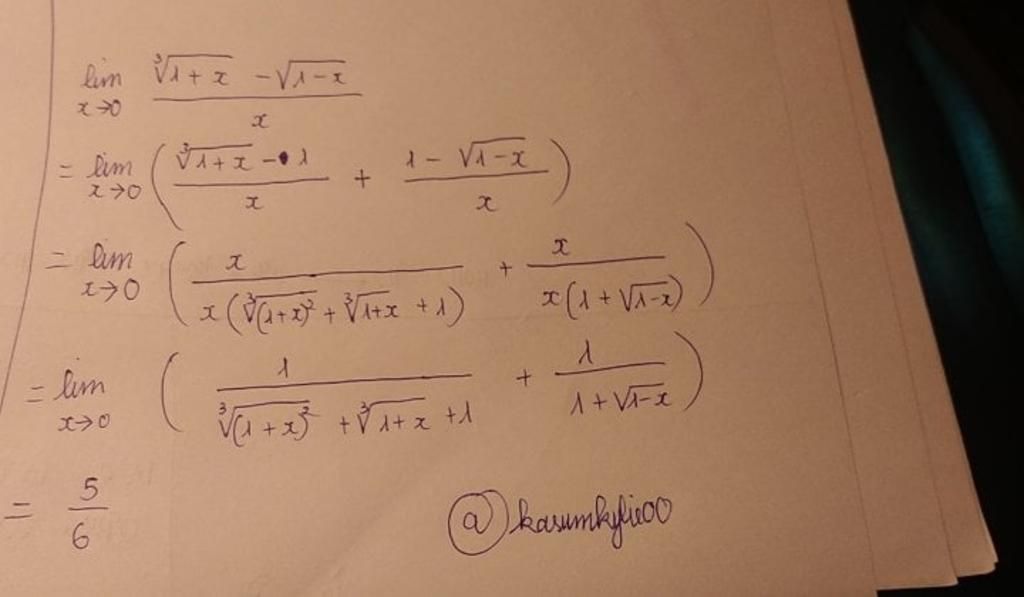 lim x→0 (∛(1+x) - √(1-x)) / x
= lim x→0 ( (∛(1+x) - 1) / x + (1 - √(1-x)) / x )
= lim x→0 ( x / (x(∛(1+x)² + ∛(1+x) + 1)) + x / (x(1 + √(1-x))) )
= lim x→0 ( 1 / (∛(1+x)² + ∛(1+x) + 1) + 1 / (1 + √(1-x)) )
= 5/6
@kasumkylie00